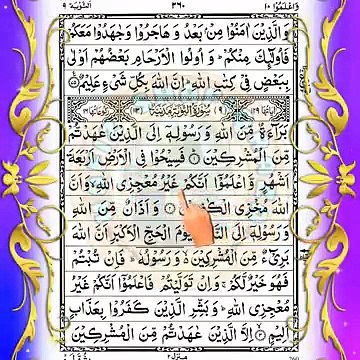 وَاعْلَمُوْٓا ١٠ ٣٦٠ التَّوْبَة ٩
وَالَّذِيْنَ اٰمَنُوْا مِنْۢ بَعْدُ وَهَاجَرُوْا وَجٰهَدُوْا مَعَكُمْ
فَاُولٰٓئِكَ مِنْكُمْ ؕ وَاُولُوا الْاَرْحَامِ بَعْضُهُمْ اَوْلٰى
بِبَعْضٍ فِيْ كِتٰبِ اللّٰهِ ؕ اِنَّ اللّٰهَ بِكُلِّ شَيْءٍ عَلِيْمٌ
(٩) سُوْرَةُ التَّوْبَةِ مَدَنِيَّةٌ
بَرَآءَةٌ مِّنَ اللّٰهِ وَرَسُوْلِهٖٓ اِلَى الَّذِيْنَ عٰهَدْتُّمْ
مِّنَ الْمُشْرِكِيْنَ فَسِيْحُوْا فِي الْاَرْضِ اَرْبَعَةَ
اَشْهُرٍ وَّاعْلَمُوْٓا اَنَّكُمْ غَيْرُ مُعْجِزِي اللّٰهِ ۙ وَاَنَّ
اللّٰهَ مُخْزِي الْكٰفِرِيْنَ وَاَذَانٌ مِّنَ اللّٰهِ
وَرَسُوْلِهٖٓ اِلَى النَّاسِ يَوْمَ الْحَجِّ الْاَكْبَرِ اَنَّ اللّٰهَ
بَرِيْٓءٌ مِّنَ الْمُشْرِكِيْنَ ۙ وَرَسُوْلُهٗ ؕ فَاِنْ تُبْتُمْ
فَهُوَ خَيْرٌ لَّكُمْ ۚ وَاِنْ تَوَلَّيْتُمْ فَاعْلَمُوْٓا اَنَّكُمْ غَيْرُ
مُعْجِزِي اللّٰهِ ؕ وَبَشِّرِ الَّذِيْنَ كَفَرُوْا بِعَذَابٍ
اَلِيْمٍ اِلَّا الَّذِيْنَ عٰهَدْتُّمْ مِّنَ الْمُشْرِكِيْنَ
منزل ٢ 360